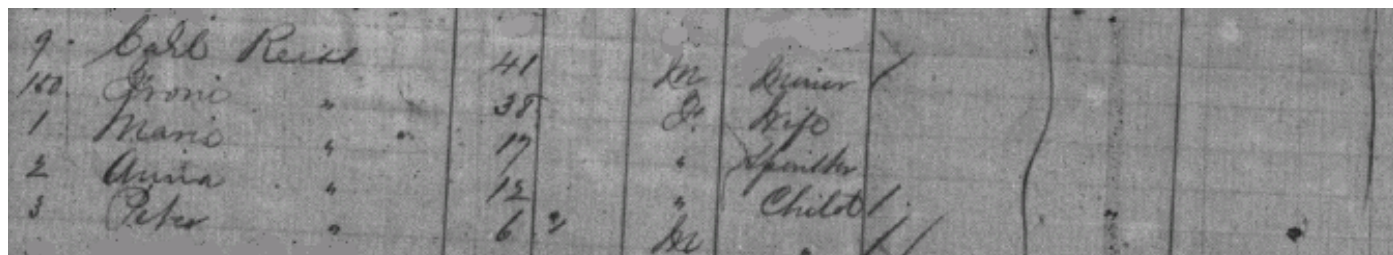 9. Carl Reiss 41 M Miner /
150. Froni " 38 F. Wife
1 Marie " 17 " Spinster
2 Anna " 12 " Child /
3 Peter " 6 " M " //